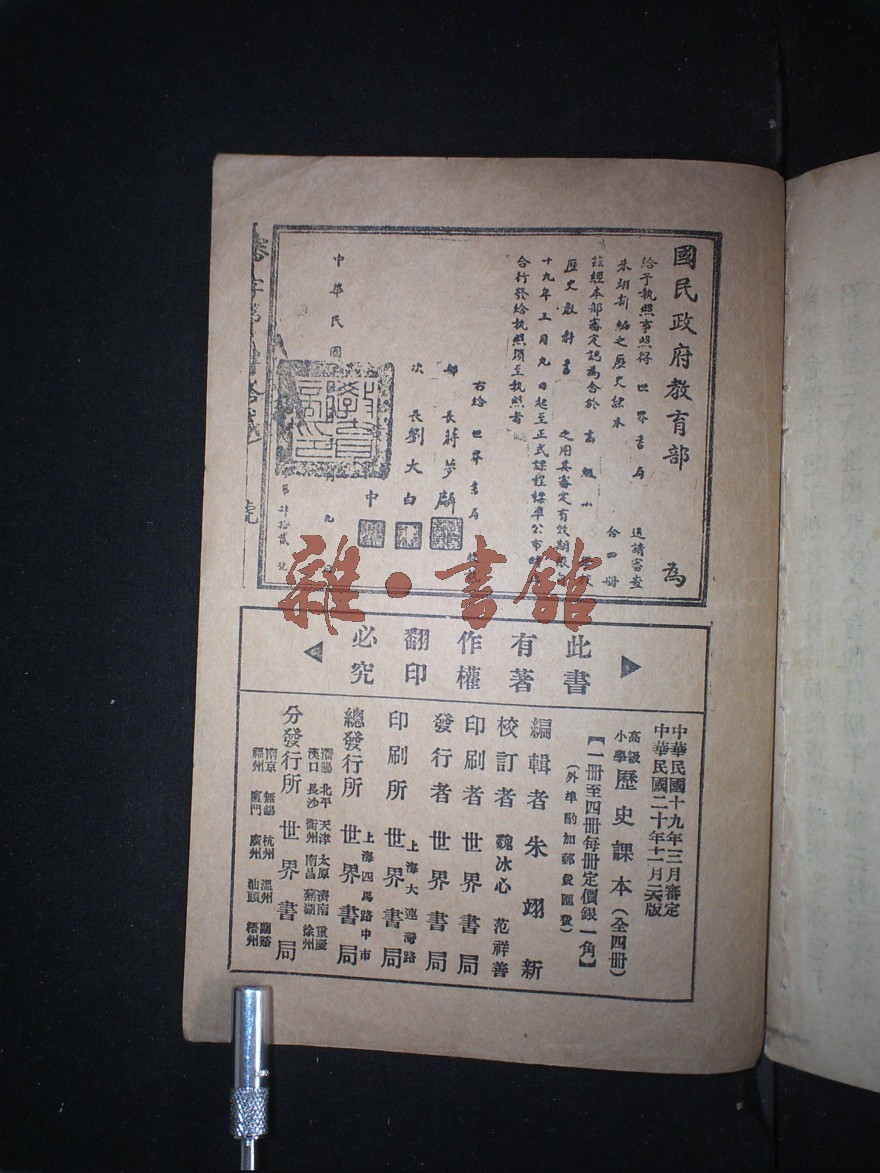 國民政府教育部 為
給予執照事照得 世界書局 送請審查
朱翊新編之歷史課本 合四冊
茲經本部審定認為合於 高級小學校
歷史教科書 之用其審定有效期限
十九年三月九日起至正式課程標準公布時
合行發給執照須至執照者
右給 世界書局
部長蔣夢麟
次長劉大白
中
中華民國 九
第肆拾貳號
此書
有著
作權
翻印
必究
中華民國十九年三月審定
中華民國二十年十一月 版
高級小學歷史課本(全四冊)
【一冊至四冊每冊定價銀一角】
(外埠酌加郵費匯費)
編輯者 朱翊新
校訂者 魏冰心 范祥善
印刷者 世界書局
發行者 世界書局
上海大連灣路
印刷所 世界書局
上海四馬路中市
總發行所 世界書局
瀋陽 北平 天津 太原 濟南 重慶
漢口 長沙 衡州 南昌 蕪湖 徐州
分發行所 世界書局
南京 無錫 杭州 溫州 蘭谿
福州 廈門 廣州 汕頭 梧州
雜·書館